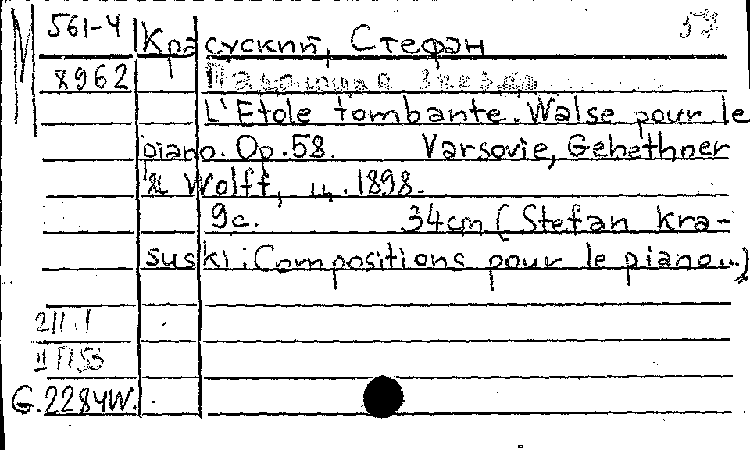 М 561-4 Красуский, Стефан 53
8962 Падающая звезда
L'Etole tombante. Walse pour le
piano. Op.58. Varsovie, Gebethner
& Wolff, ц. 1898.
9с. 34cm (Stefan Kra-
suski: Compositions pour le piano...)
211.1
II
G.2284W.